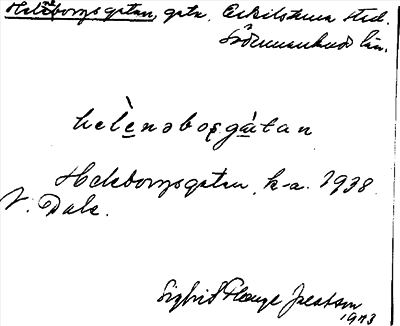 Heleborgsgatan, gata. Eskilstuna stad.
Södermanlands län.
helènəbosgàtan
Heleborgsgatan, k-a. 1938
V. Dale.
Sigfrid
1973